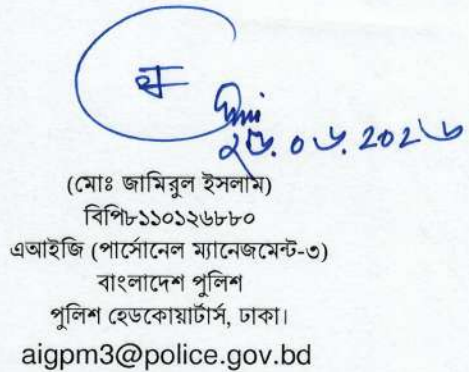 ২৬.০৬.২০২৬
(মোঃ জামিরুল ইসলাম)
বিপি৮১১০১২৬৮৮০
এআইজি (পার্সোনেল ম্যানেজমেন্ট-৩)
বাংলাদেশ পুলিশ
পুলিশ হেডকোয়ার্টার্স, ঢাকা।
aigpm3@police.gov.bd